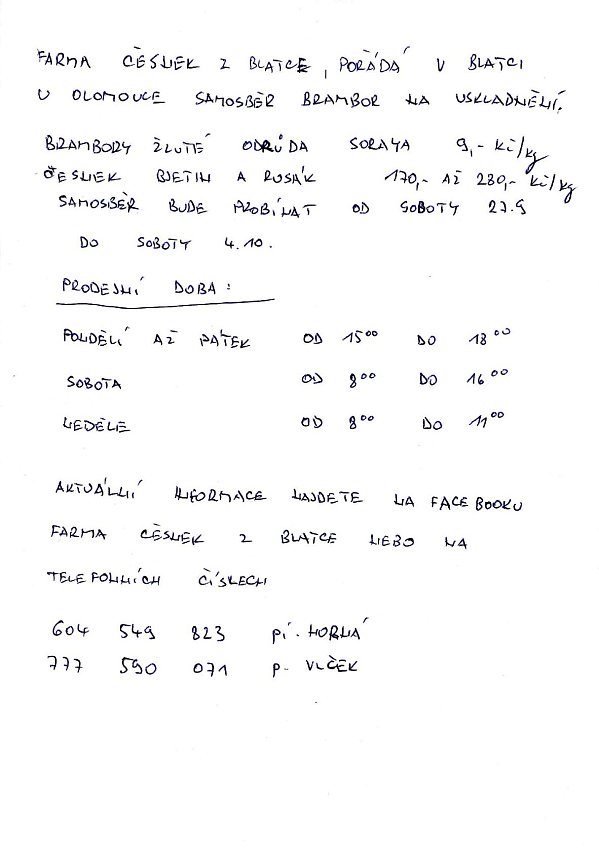 FARMA ČĚSNEK Z BLATCE, POŘÁDÁ V BLATCI
U OLOMOUCE SAMOSBĚR BRAMBOR NA USKLADNĚNÍ.
BRAMBORY ŽLUTÉ ODRŮDA SORAYA 9,- Kč/kg
ČESNEK BJETIN A RUSÁK 170,- AŽ 230,- Kč/kg
SAMOSBĚR BUDE PROBÍHAT OD SOBOTY 27.9
DO SOBOTY 4.10.
PRODEJNÍ DOBA:
PONDĚLÍ AŽ PÁTEK OD 15⁰⁰ DO 18⁰⁰
SOBOTA OD 8⁰⁰ DO 16⁰⁰
NEDĚLE OD 8⁰⁰ DO 11⁰⁰
AKTUÁLNÍ INFORMACE NAJDETE NA FACEBOOKU
FARMA ČĚSNEK Z BLATCE NEBO NA
TELEFONNÍCH ČÍSLECH
604 549 823 pí. HORNÁ
777 590 071 p. VLČEK